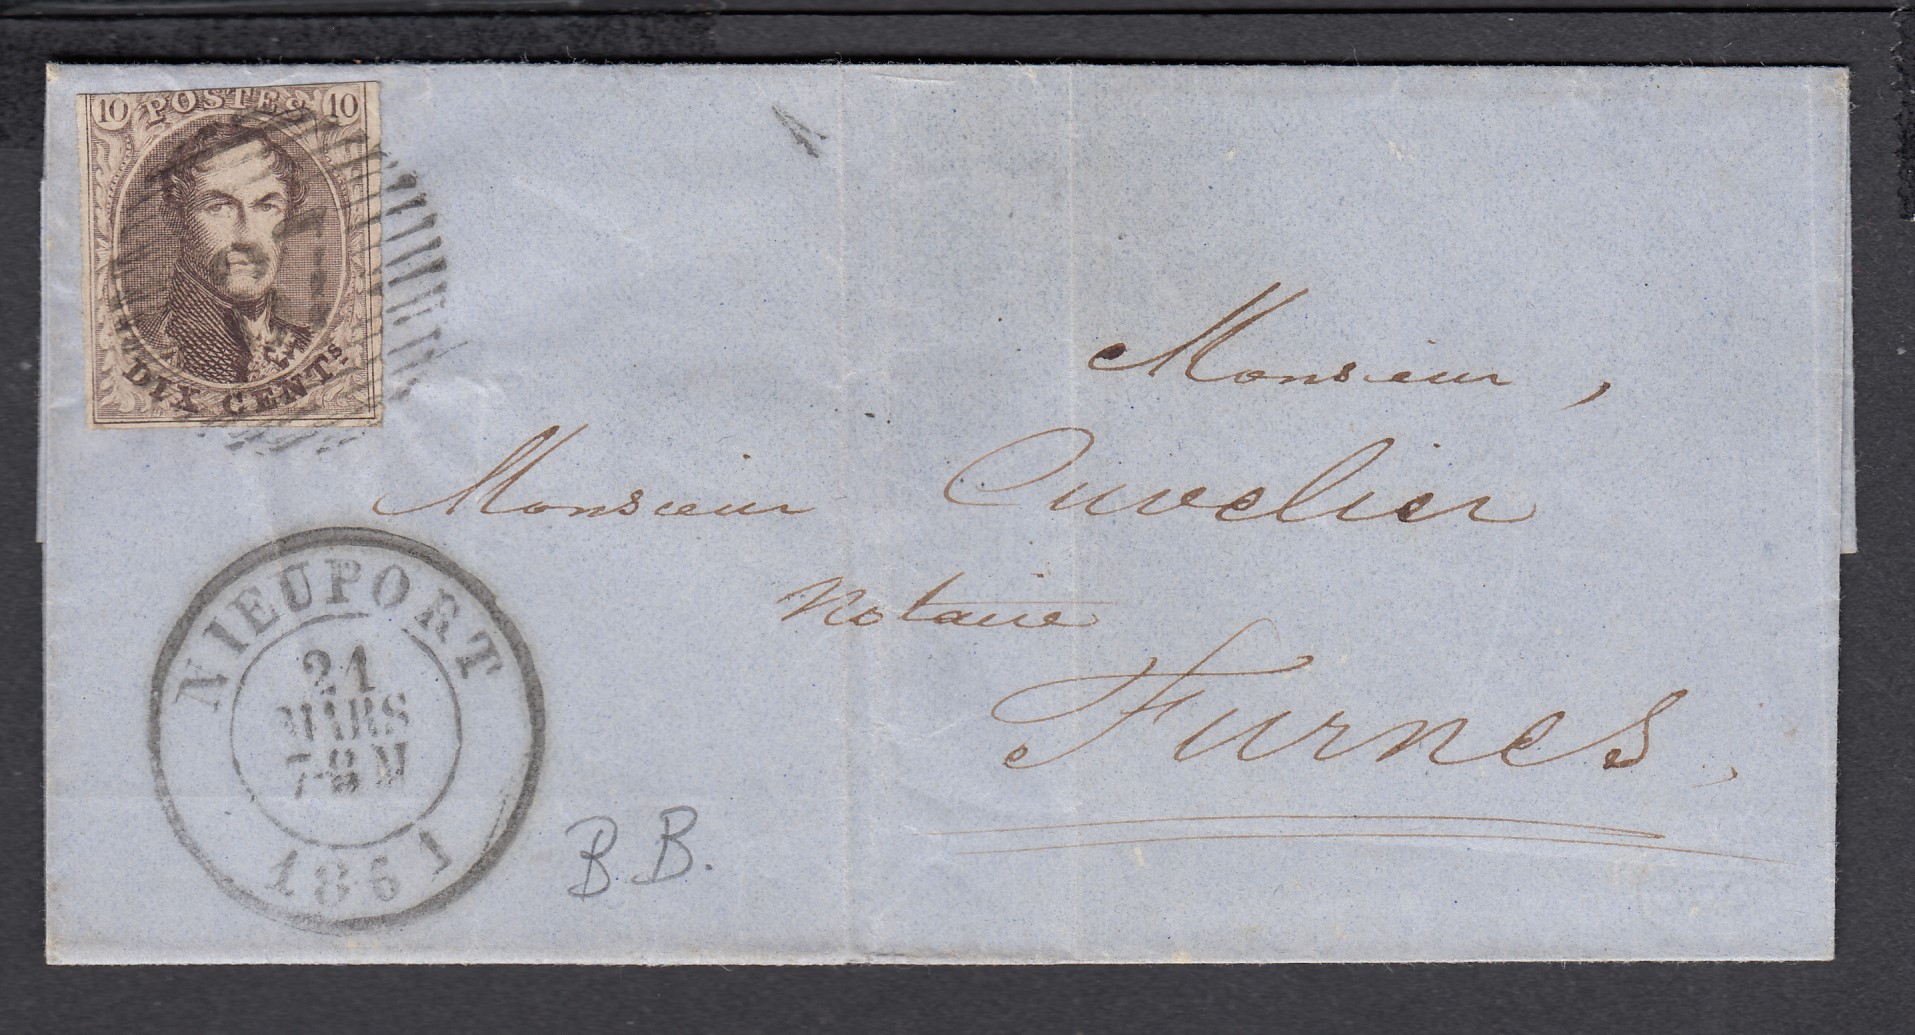 10 POSTES 10
DIX CENTS.
1
Monsieur,
Monsieur Cuvelier
Notaire
Furnes,
NIEUPORT
21
MARS
7-8 M
1861
B.B.